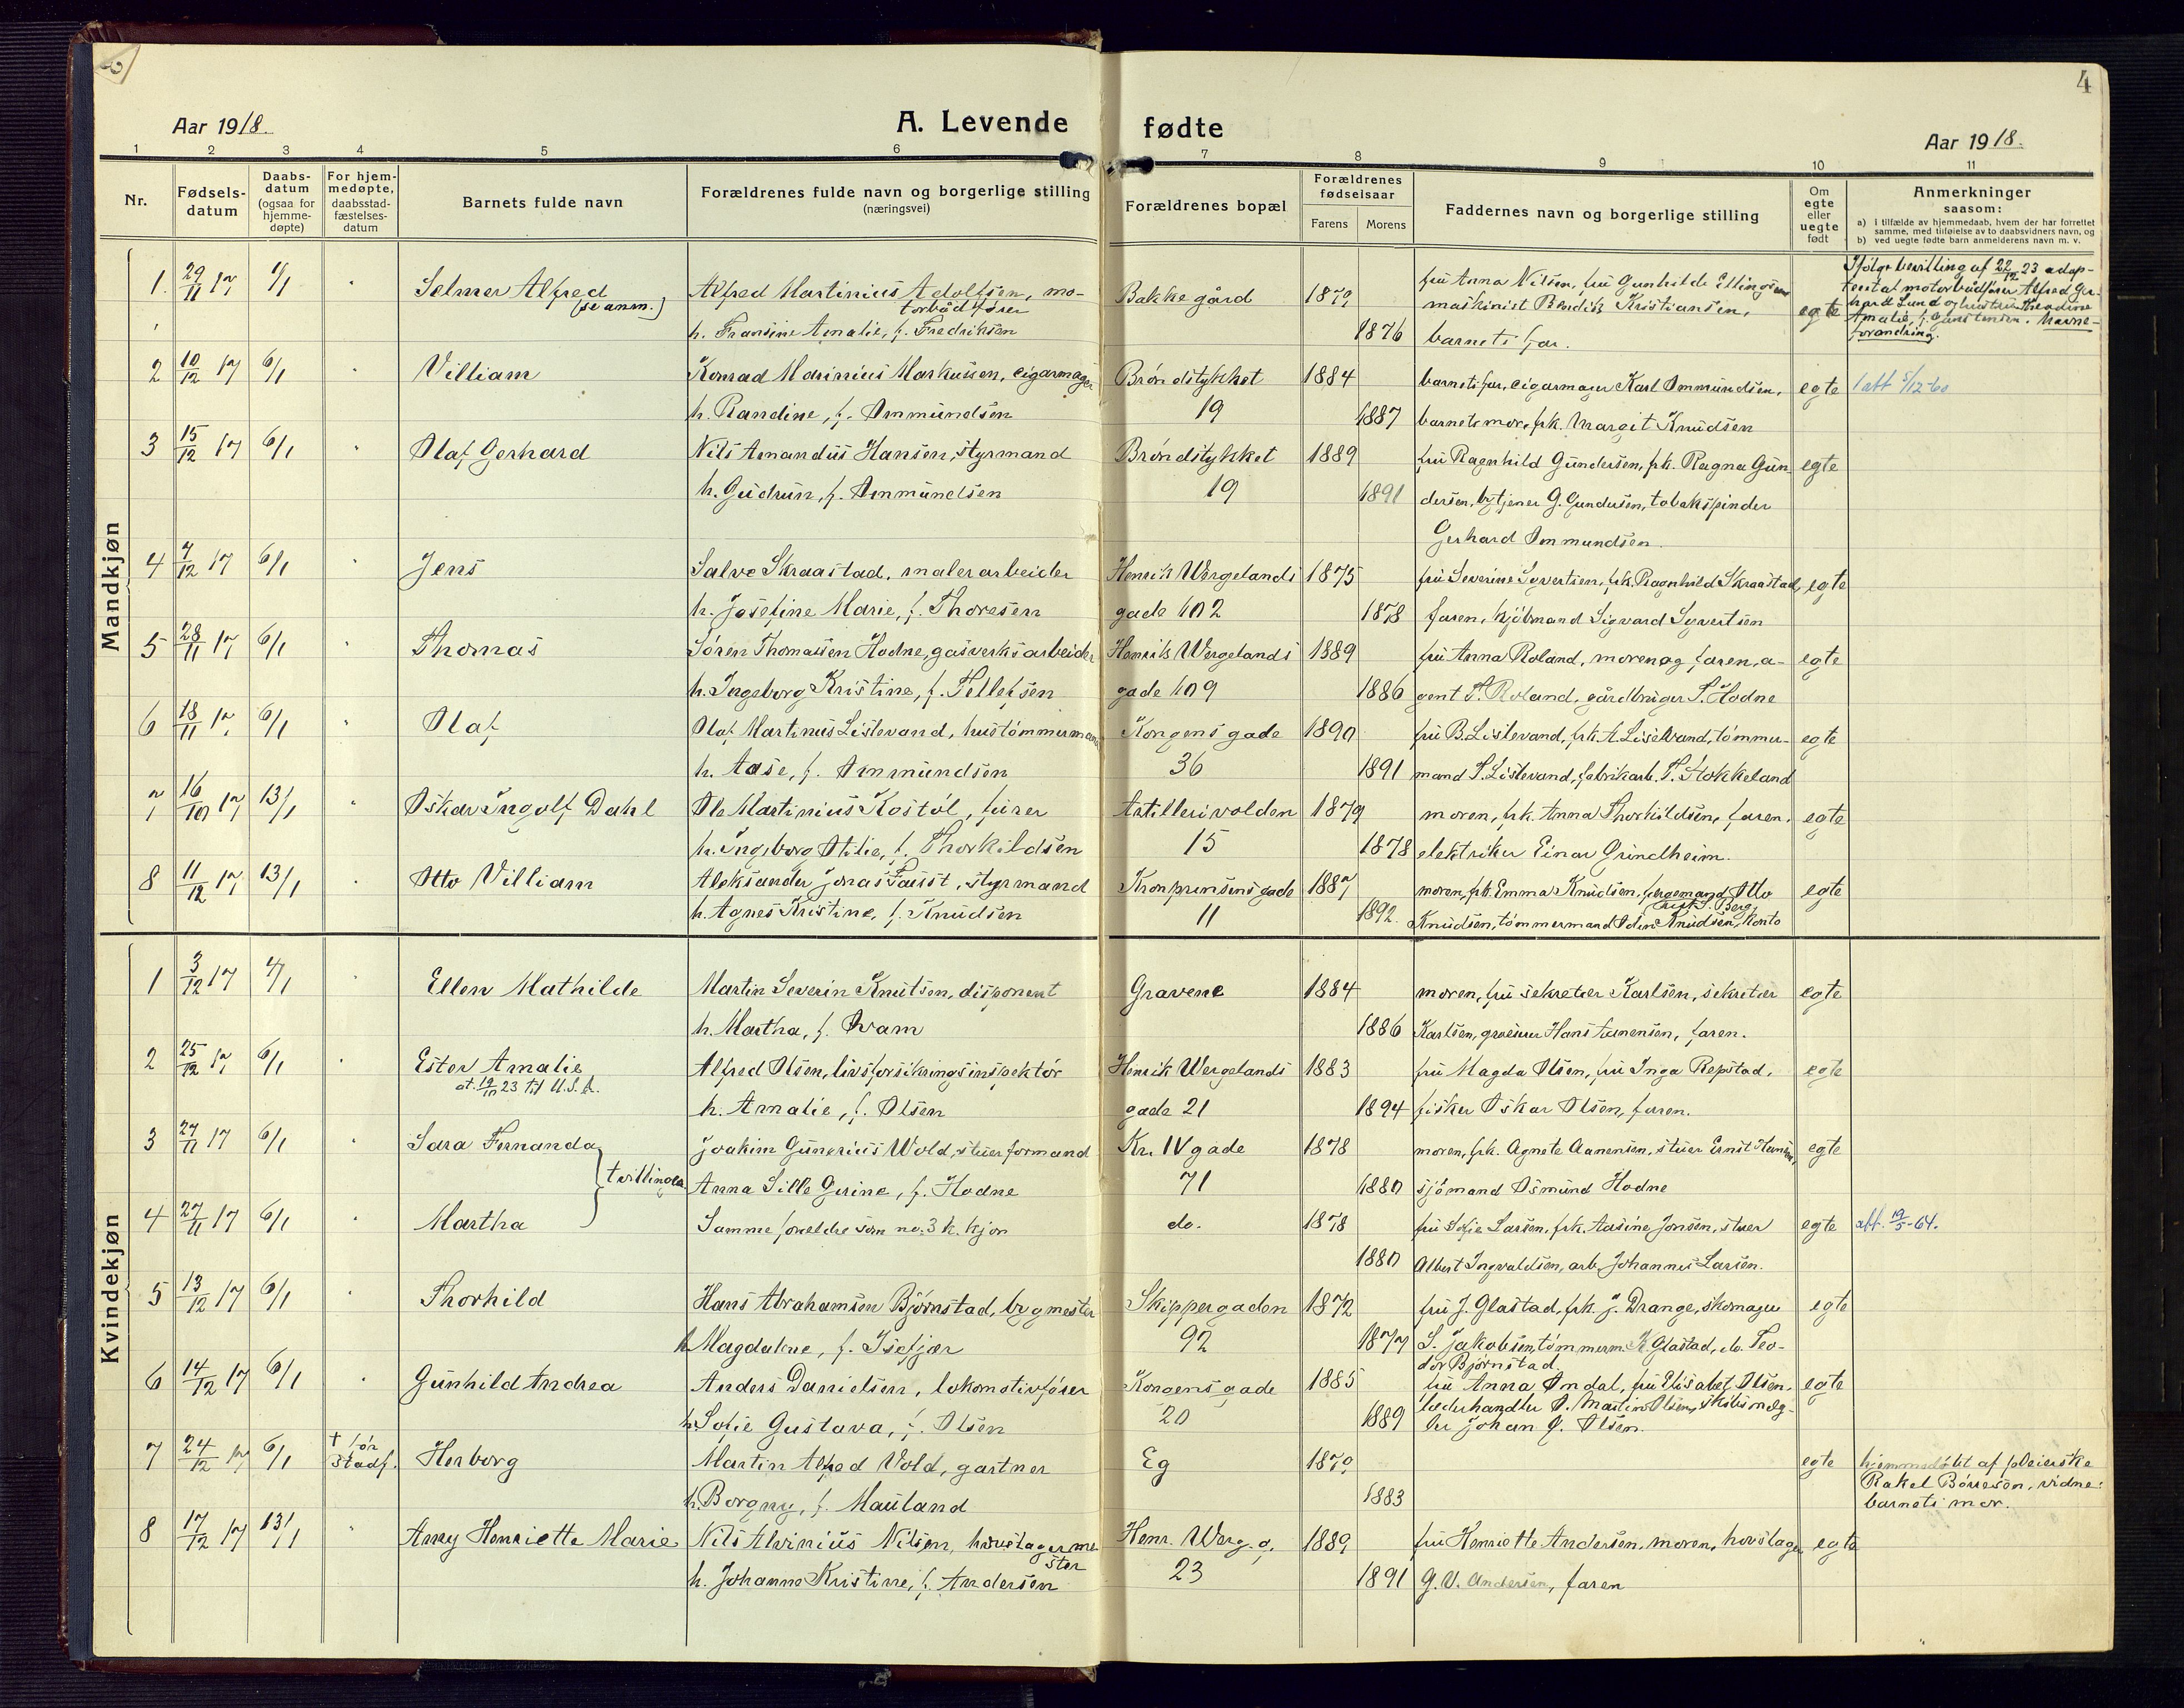 4
Aar 1918.
A. Levende fødte
Aar 1918.
1 2 3 4 5 6 7 8 9 10 11
Nr.
Fødsels-datum
Daabs-datum (ogsaa for hjemme-døpte)
For hjem-medøpte, daabsstad-fæstelses-datum
Barnets fulde navn
Forældrenes fulde navn og borgerlige stilling
(næringsvei)
Forældrenes bopæl
Forældrenes fødselsaar
Farens Morens
Faddernes navn og borgerlige stilling
Om egte eller uegte født
Anmerkninger
saasom:
a) i tilfælde av hjemmedaab, hvem der har forrettet samme, med tilføielse av to daabsvidners navn, og
b) ved uegte fødte barn anmelderens navn m. v.
Mandkjøn
1. 29/11 17 1/1 Selmer Alfred (se anm.) Alfred Martinius Adolfsen, mo- Bakkegård 1879 frü Anna Nilsen, frü Gunhilde Ellingsen
torbådfører maskinist Bendik Kristiansen, egte
h. Fransine Amalie, f. Fredriksen 1876 barnets far.
Ifølge bevilling af 22/12 23 adop-
tert at motorbådfører Alfred Ger-
hard Lund og hustru Theodine
Amalie, f. Gunstensen. Navne-
forandring.
2 10/12 17 6/1 Villiam Konrad Marinius Markussen, cigarmager Brøndstykket 1884 barnets far, cigarmager Karl Ommundsen, egte 1 att 5/12-60
h. Randine, f. Ommundsen 19 1887 barnets mor, frk. Margit Knudsen
3 15/12 17 6/1 Olaf Gerhard Nils Amandus Hansen, styrmand Brøndstykket 1889 frü Ragnhild Gundersen, frk. Ragna Gun egte
h. Gudrun, f. Ommundsen 19 1891 dersen, bytjener G. Gundersen, tobakspinder
Gerhard Ommundsen.
4 7/12 17 6/1 Jens Salve Skraastad, malerarbeider Henrik Wergelands 1875 frü Severine Syvertsen, frk. Ragnhild Skraastad, egte
h. Josefine Marie, f. Thoresen gade 102 1878 faren, kjøbmand Sigvard Syvertsen
5 28/11 17 6/1 Thomas Søren Thomassen Hodne, gasverksarbeider Henrik Wergelands 1889 frü Anna Roland, moren og faren, a- egte
h. Ingeborg Kristine, f. Tellefsen gade 109 1886 gent T. Roland, gårdbruger T. Hodne
6 18/11 17 6/1 Olaf Olaf Martinus Listevand, hustømmermand Kongensgade 1890 frü B. Listevand, frk. A. Listevand, tømmer- egte
h. Aase, f. Ommundsen 36 1891 mand T. Listevand, fabrikarb. T. Stokkeland
7 16/10 17 13/1 Oskar Ingolf Dahl Ole Martinius Kostøl, furer Artillerivolden 1879 moren, frk. Anna Thorkildsen, faren, egte
h. Ingeborg Otilie, f. Thorkildsen 15 1878 elektriker Einar Grindheim.
8 11/12 17 13/1 Otto Villiam Aleksander Jonas Faust, styrmand Kronprinsensgade 1887 moren, frk. Emma Knudsen, fergemand Otto egte
h. Agnes Kristine, f. Knudsen 11 1892. Knudsen, tømmermand Odin Knudsen, konto
rist S. Berg.
Kvindekjøn
1 3/12 17 4/1 Ellen Mathilde Martin Severin Knutsen, disponent Gravene 1884 moren, frü sekretær Karlsen, sekretær egte
h. Martha, f. Kvam 1886 Karlsen, graverer Hans Aanensen, faren.
2 25/12 17 6/1 Ester Amalie Alfred Olsen, livsforsikringsinspektør Henrik Wergelands 1883 frü Magda Olsen, frü Inga Repstad, egte
at. 19/10 23 til U.S.A. h. Amalie, f. Olsen gade 21 1894 fisker Oskar Olsen, faren.
3 27/11 17 6/1 Sara Fernanda Joakim Gunerius Wold, stuerformand Kr. IV gade 1878 moren, frk. Agnete Aanensen, stuer Ernst Hansen, egte
tvillinger Anna Sille Gurine, f. Hodne 71 1880 sjømand Osmund Hodne
4 27/11 17 6/1 Martha Samme foreldre som no. 3 k. kjøn do. 1878 frü Sofie Larsen, frk. Aasine Jonsen, stuer egte att. 19/5-64.
1880 Albert Ingvaldsen, arb. Johannes Larsen.
5 13/12 17 6/1 Thorhild Hans Abrahamsen Bjørnstad, bygmester Skippergaden 1872 frü J. Glastad, frk. J. Drange, skomager egte
h Magdalene, f. Isefjær 92 1877 S. Jakobsen, tømmerm. K. Glastad, do. Teo-
dor Bjørnstad.
6 14/12 17 6/1 Gunhild Andrea Anders Danielsen, lokomotivfører Kongensgade 1885 frü Anna Omdal, frü Elisabet Olsen, egte
h. Sofie Gustava, f. Olsen 20 1889 læderhandler O. Martin Olsen, skibsmeg-
ler Johan G. Olsen.
7 24/12 17 6/1 † før stadf. Herborg Martin Alfred Vold, gartner Eg 1879 egte hjemmedøbt af pleierske
h Borgny, f. Mauland 1883 Rakel Børresen, vidne:
barnets mor.
8 17/12 17 13/1 Anny Henriette Marie Nils Alvinius Nilsen, hovslagerme Henr. Werg. g. 1889 frü Henriette Andersen, moren, hovslager egte
ster
h. Johanne Kristine, f. Andersen 23 1891 G. V. Andersen, faren